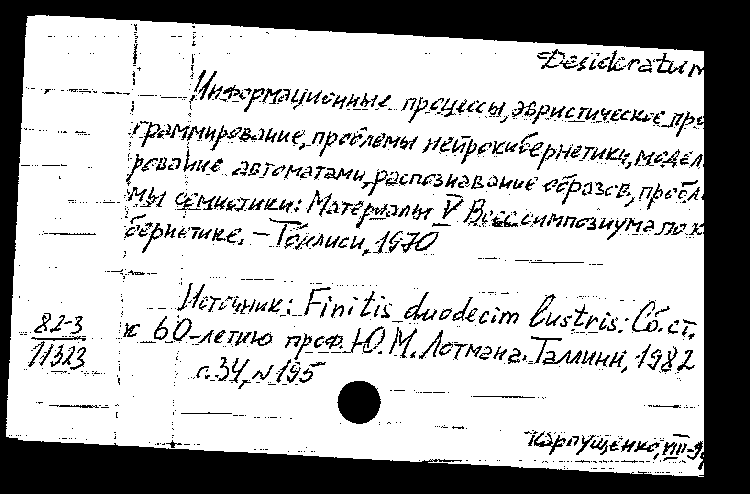 Desideratum
Информационные процессы, эвристическое про
граммирование, проблемы нейрокибернетики, модели
рование автоматами, распознавание образов, пробле
мы семиотики: Материалы V Всес. симпозиума по к
бернетике. – Тбилиси, 1970
Источник: Finitis duodecim lustris: Сб. ст.
82-3 к 60-летию проф. Ю.М. Лотмана. Таллинн, 1982
11323 с. 34, N 195
Карпущенко, VIII-9